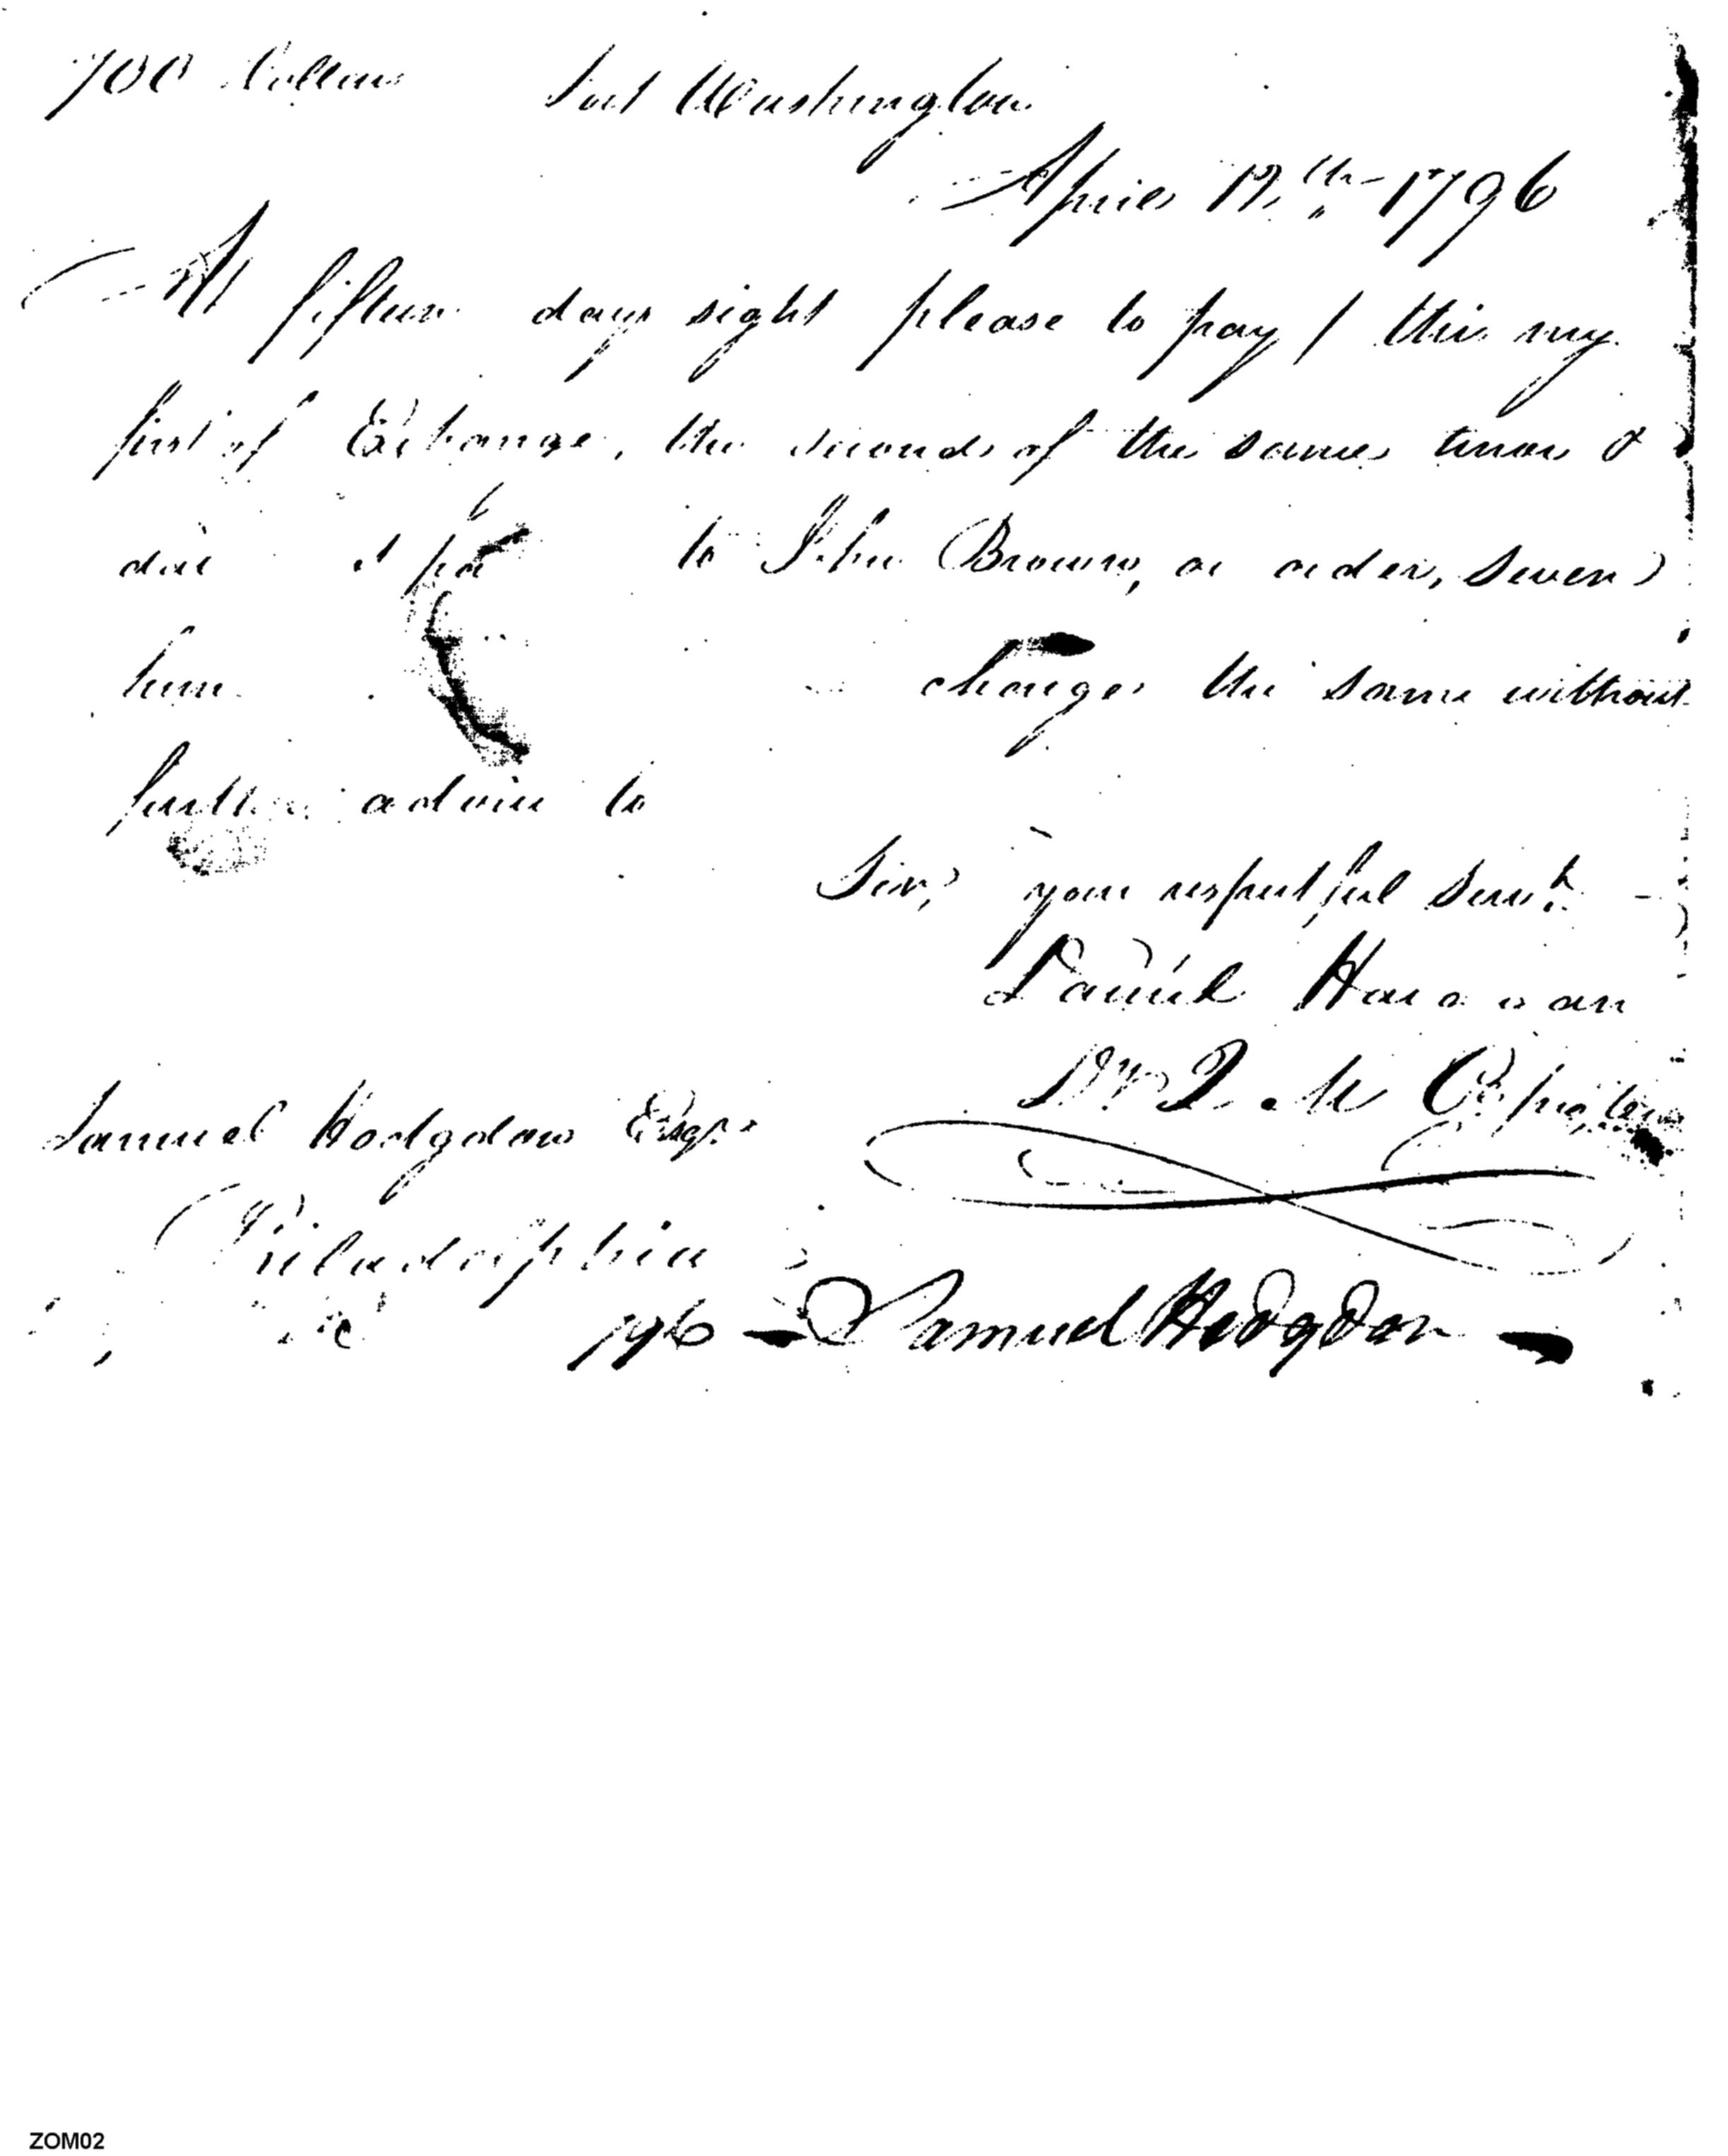 700 Dollars Fort Washington
April 12th 1796
At fifteen days sight please to pay / this my
first of Exchange, the second of the same tenor &
date to John Brown, or order, seven
hun charge the same without
further advice to
Sir, your respectful Servt.
Samuel Hodgdon Esqr.
D. Q. M
Philadelphia
1796 - Samuel Hodgdon -
ZOM02